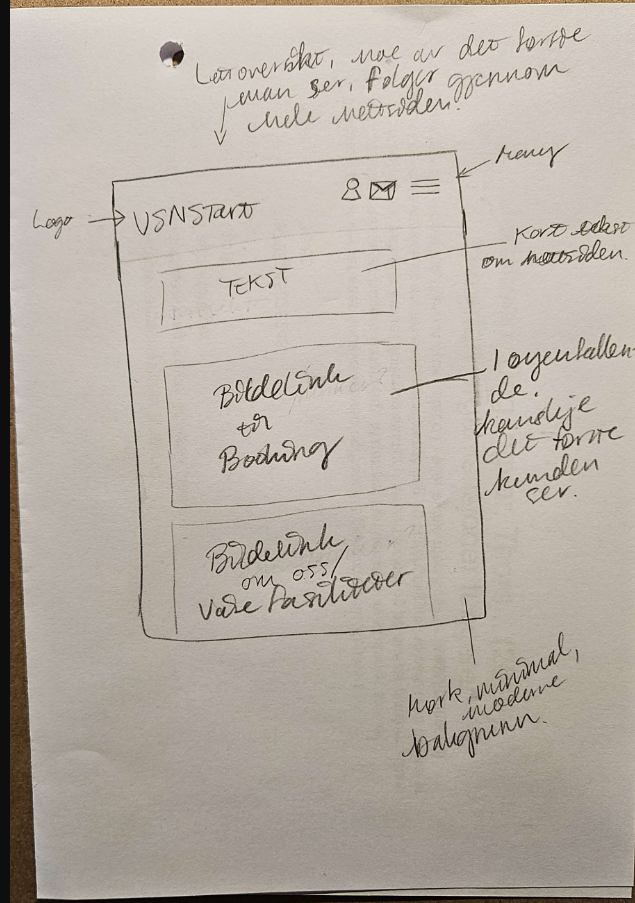 Lett oversikt, noe av det første
man ser, følger gjennom
hele nettsiden.
Meny
Logo
USNStart
Kort tekst
om nettsiden.
TEKST
Bildelink
til
Booking
I øyenfallen-
de.
kanskje
det første
kunden
ser.
Bildelink
om oss/
Våre fasiliteter
Mørk, minimal,
moderne
bakgrunn.